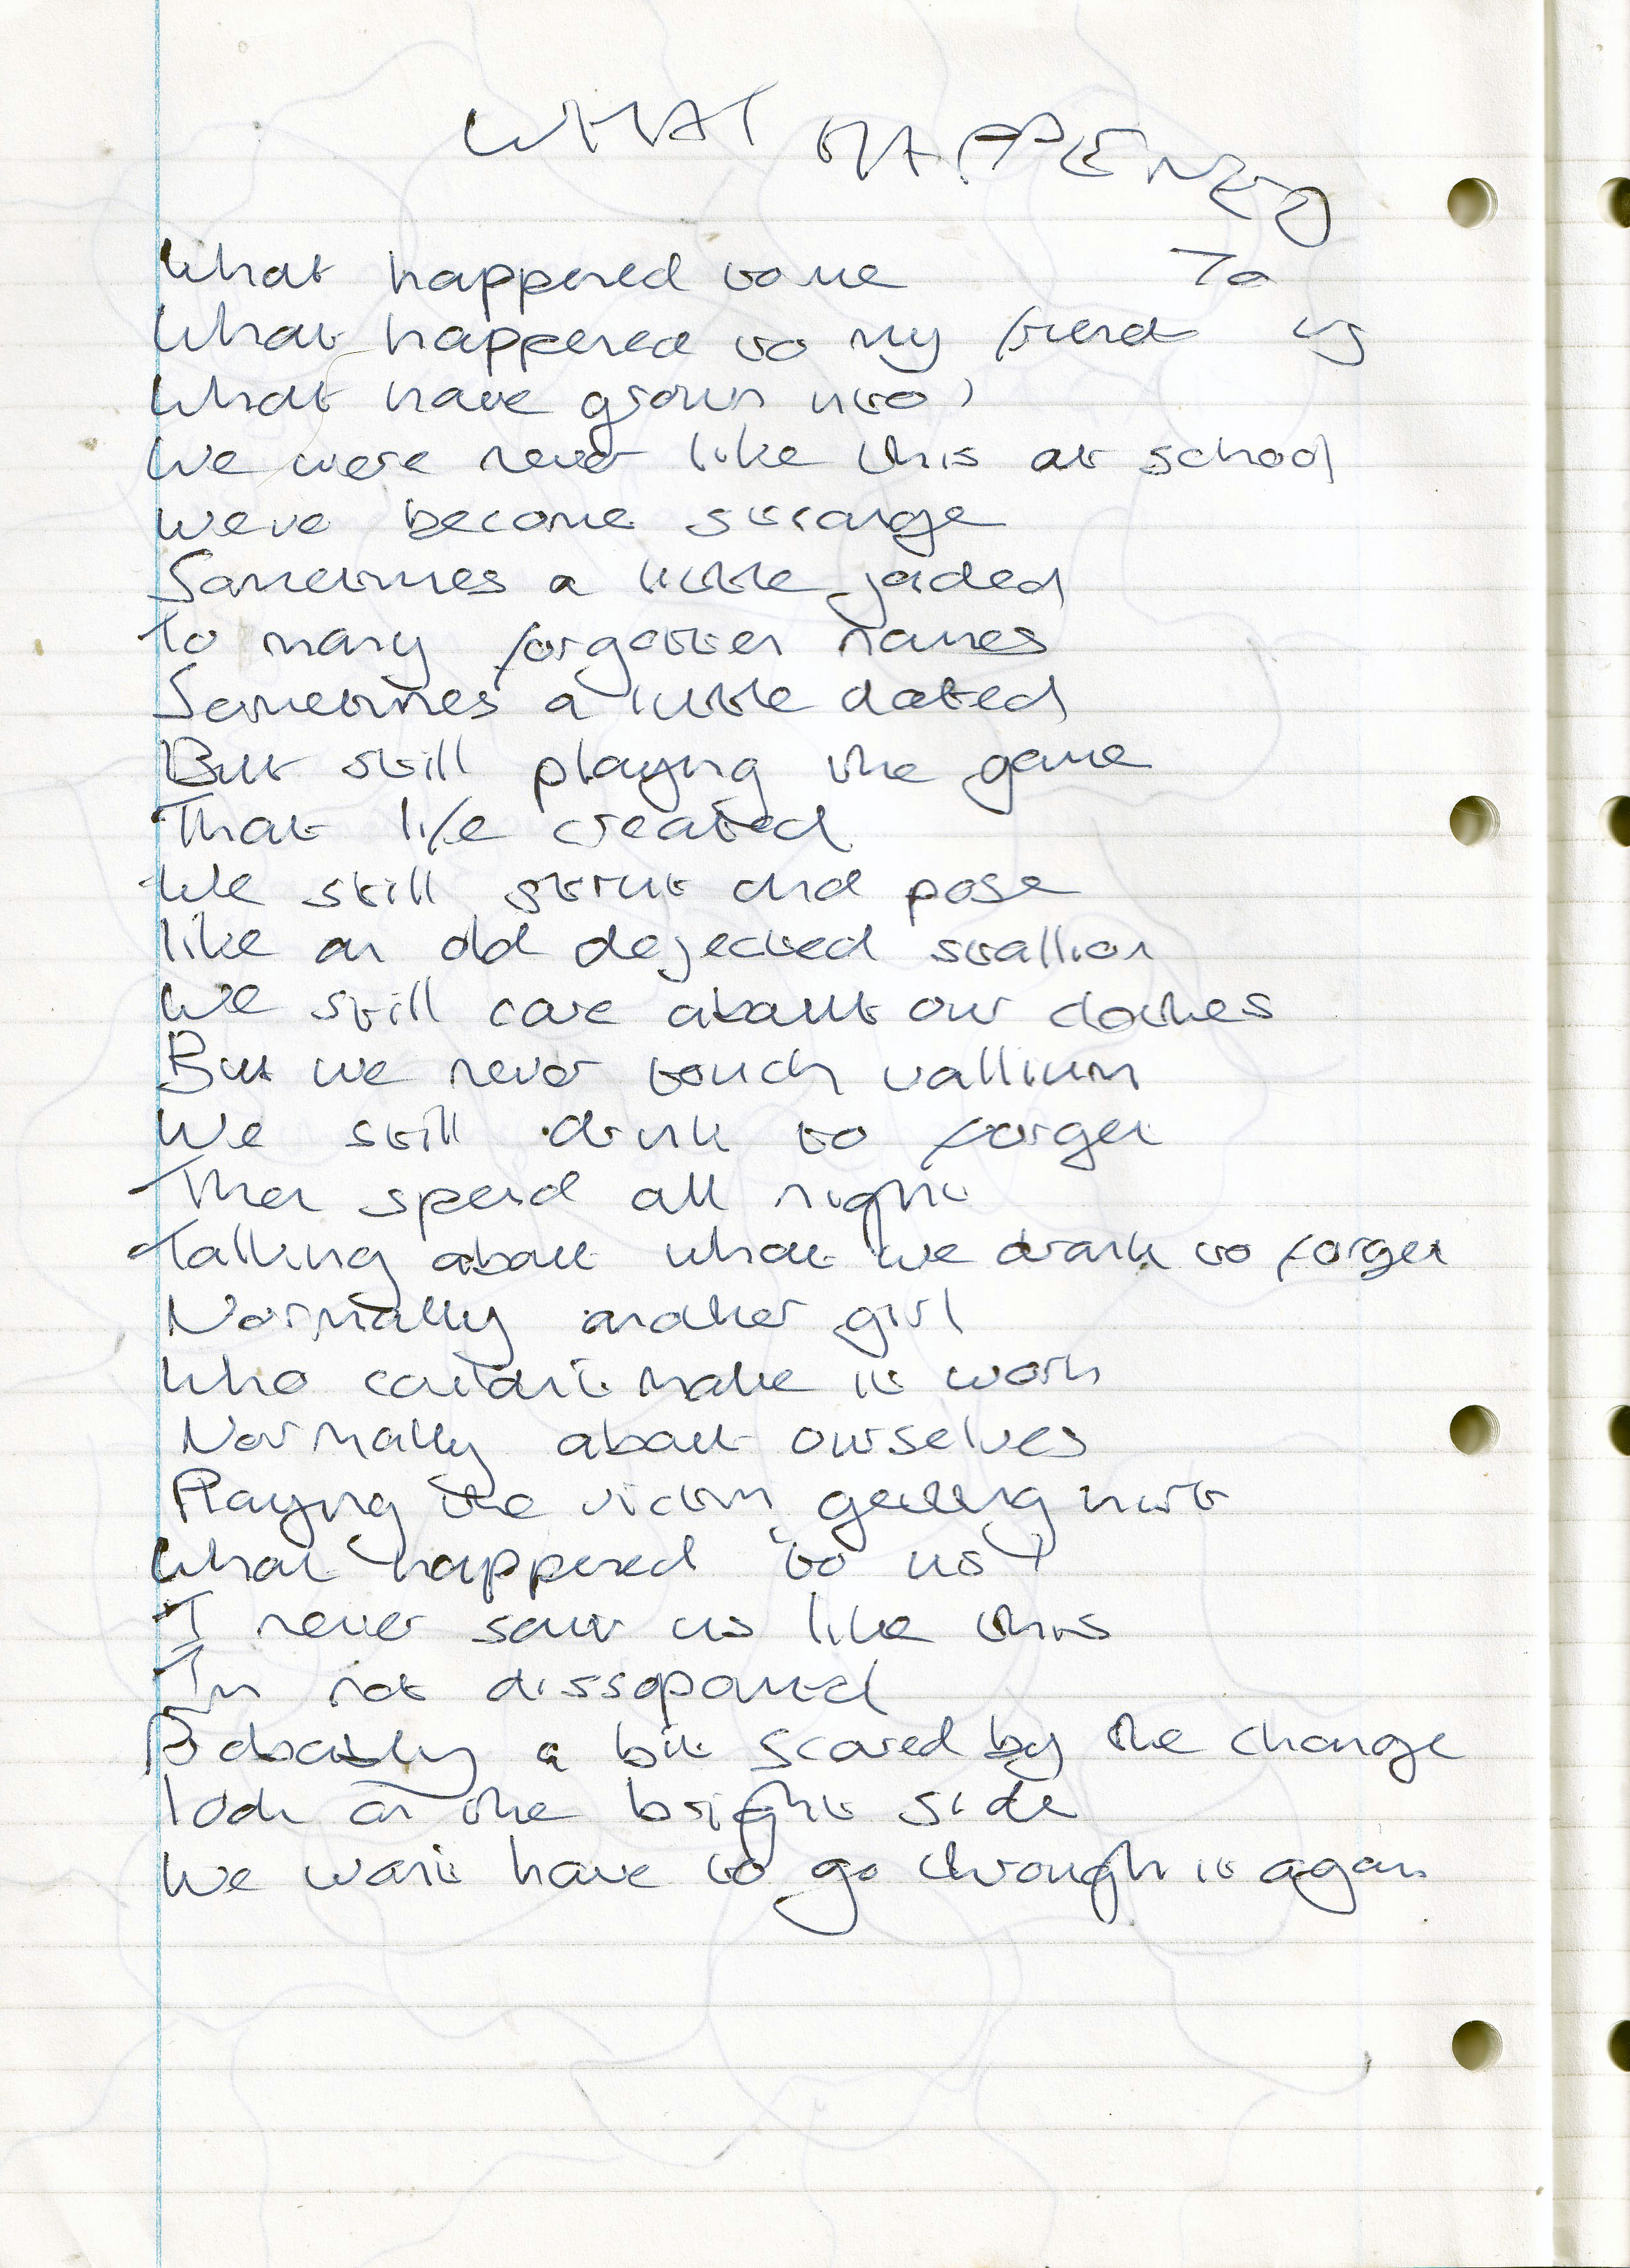 WHAT HAPPENED
To
us
What happened to me
What happened to my friend
What have grown into?
We were never like this at school
Weve become strange
Sometimes a little jaded
To many forgotten names
Sometimes a little dated
But still playing the game
That life created
We still strut and pose
like an old dejected stallion
We still care about our clothes
But we never touch vallium
We still drink to forget
Then spend all night
Talking about what we drank to forget
Normally another girl
Who couldn't make it work
Normally about ourselves
Playing the victim, getting hurt
What happened to us?
I never saw us like this
I'm not dissapointed
Probably a bit scared by the change
look on the bright side
We won't have to go through it again